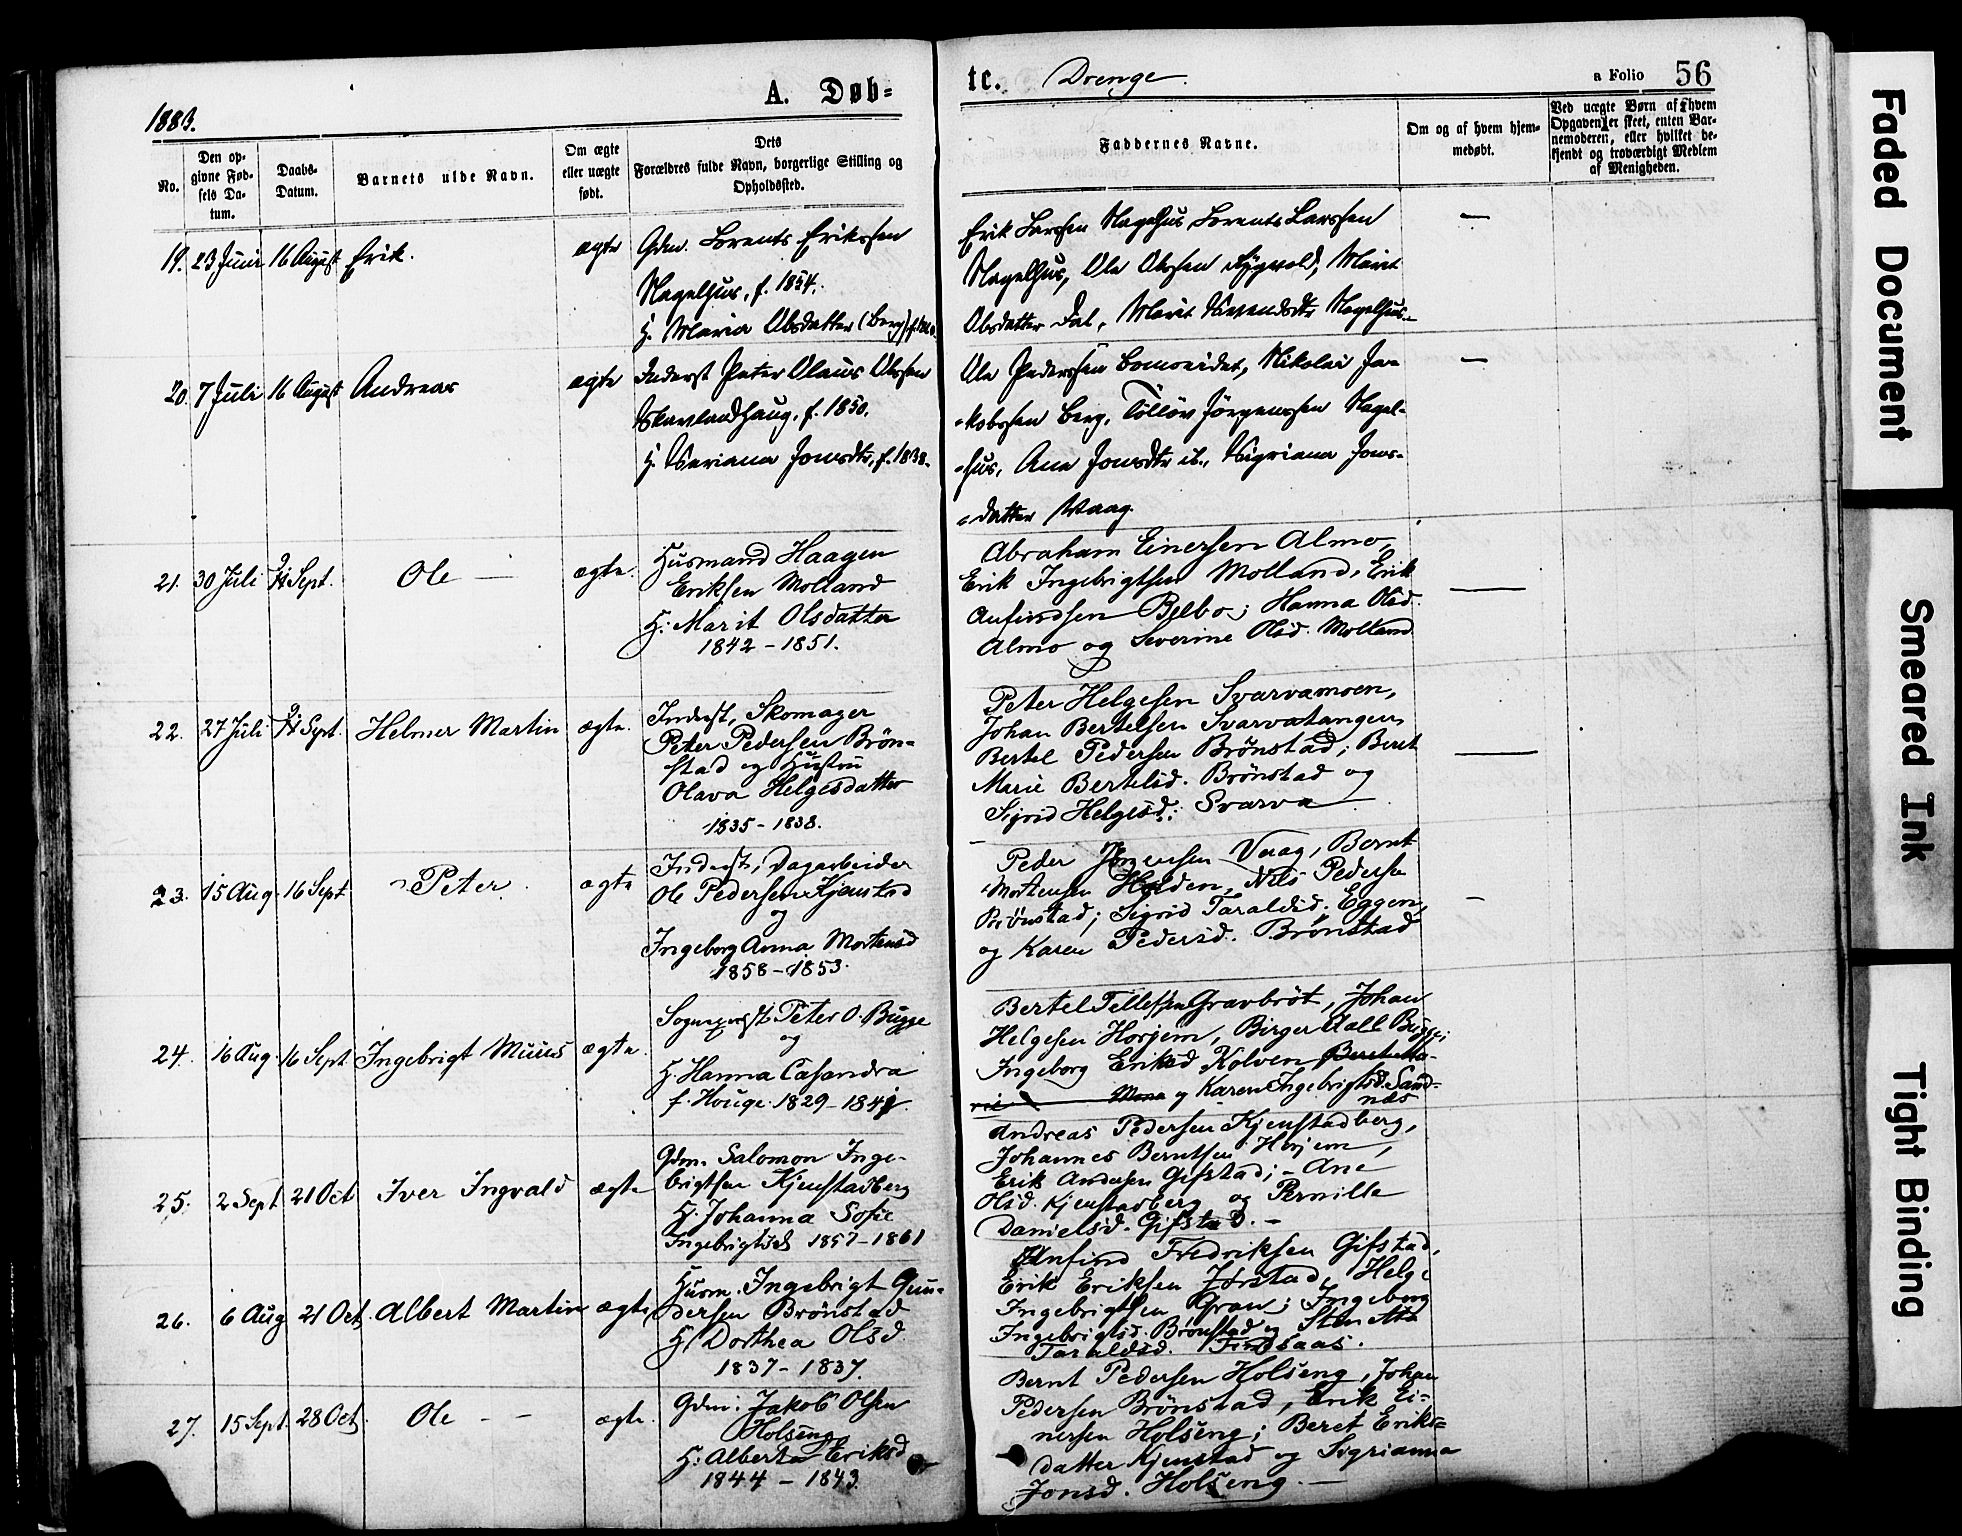 1883.
A. Døb=
tc. Drenge.
a Folio 56
No.
Den op-
givne Fød-
sels Da-
tum.
Daabs-
Datum.
Barnets ulde Navn.
Om ægte
eller uægte
født.
Dets
Forældres fulde Navn, borgerlige Stilling og
Opholdssted.
Faddernes Navne.
Om og af hvem hjem-
medøbt.
Ved uægte Børn af hvem
Opgaven er skeet, enten Bar-
nemoderen, eller hvilket be-
kjendt og troværdigt Medlem
af Menigheden.
19. 23 Juni 16 August Erik. ægte
Gdm. Lorents Erikssen
Nagelhus, f. 1854.
H. Maria Olsdatter (Berg)
Erik Larssen Nagelhus Lorents Larssen
Nagelhus, Ole Olessen Marit
Olsdatter Dal, Marit Nagelhus.
—
20. 7 Juli 16 August Andreas ægte
Inderst Peter Olaus Olssen
Skevlandhaug, f. 1850.
H. Seriana Jonsdtr, f. 1838.
Ole Pederssen Nikolai Ja-
kobssen Berg, Jörgenssen Nagel-
hus, Ane Jonsdtr Sigriana Jons-
datter Waag.
—
21. 30 Juli 9/ Sept. Ole — ægte.
Husmand Haagen
Eriksen Molland
H: Marit Olsdatter
1842 - 1851.
Abraham Einersen Almo,
Erik Ingebrigtsen Molland, Erik
Anfindsen Belbo; Hanna Olsd.
Almo og Severine Olsd. Molland
—
22. 27 Juli 9/ Sept. Helmer Martin ægte.
Inderst, Skomager
Peter Pedersen Brön-
stad og Hustru
Olava Helgesdatter
1835 - 1838.
Peter Helgesen Svarvamoen,
Johan Bertelsen Svarvatangen,
Bertel Pedersen Brönstad; Beret
Marie Bertelsd. Brönstad og
Sigrid Helgesd: Svarva
—
23. 15 Aug. 16 Sept Peter. ægte
Inderst, Dagarbeider
Ole Pedersen Kjenstad
og
Ingeborg Anna Mortensd
1858 - 1853.
Peder Jörgensen Vaag, Bernt
Mortensen Holden, Nils Pedersen
Brönstad; Sigrid Taraldsd. Eggen,
og Karen Pedersd. Brönstad
-
24. 16 Aug. 16 Sept Ingebrigt Muus ægte.
Sogneprest Peter O. Bugge
og
H. Hanna Casandra
f. Houge. 1829 - 184
Bertel Tellefsen Gravbröt, Johan
Helgesen Horjem, Birger Aall Bugge;
Ingeborg Eriksd Kolven Beret Ma-
rie og Karen Ingebrigtsd. Sand-
nes
25. 2 Sept 21 Oct Iver Ingvald ægte
Gdm. Salomon Inge-
brigtsen Kjenstadberg
H. Johanna Sofie
Ingebrigtsd. 1857 - 1861
Andreas Pedersen Kjenstadberg,
Johannes Berntsen Horjem,
Erik Andersen Gifstad; - Ane
Olsd. Kjenstadberg og Pernille
Danielsd. Gifstad. -
26. 6 Aug 21 Oct. Albert Martin ægte
Husm. Ingebrigt Gun-
dersen Brönstad
H. Dorthea Olsd
1837 - 1837.
Anfind Fredriksen Gifstad,
Erik Eriksen Jörstad, Helge
Ingebrigtsen Gran; Ingeborg
Ingebrigtsd. Brönstad og Stenetta
Taraldsd. Findsaas.
27. 15 Sept. 28 Oct. Ole - - ægte.
Gdm: Jakob Olsen
Holseng
H: Alberta Eriksd
1844 - 1843.
Bernt Pedersen Holseng, Johan
Pedersen Brönstad, Erik Ei-
nersen Holseng; Beret Eriks-
datter Kjenstad og Sigrianna
Jonsd. Holseng. —
Faded Document
Smeared Ink
Tight Binding